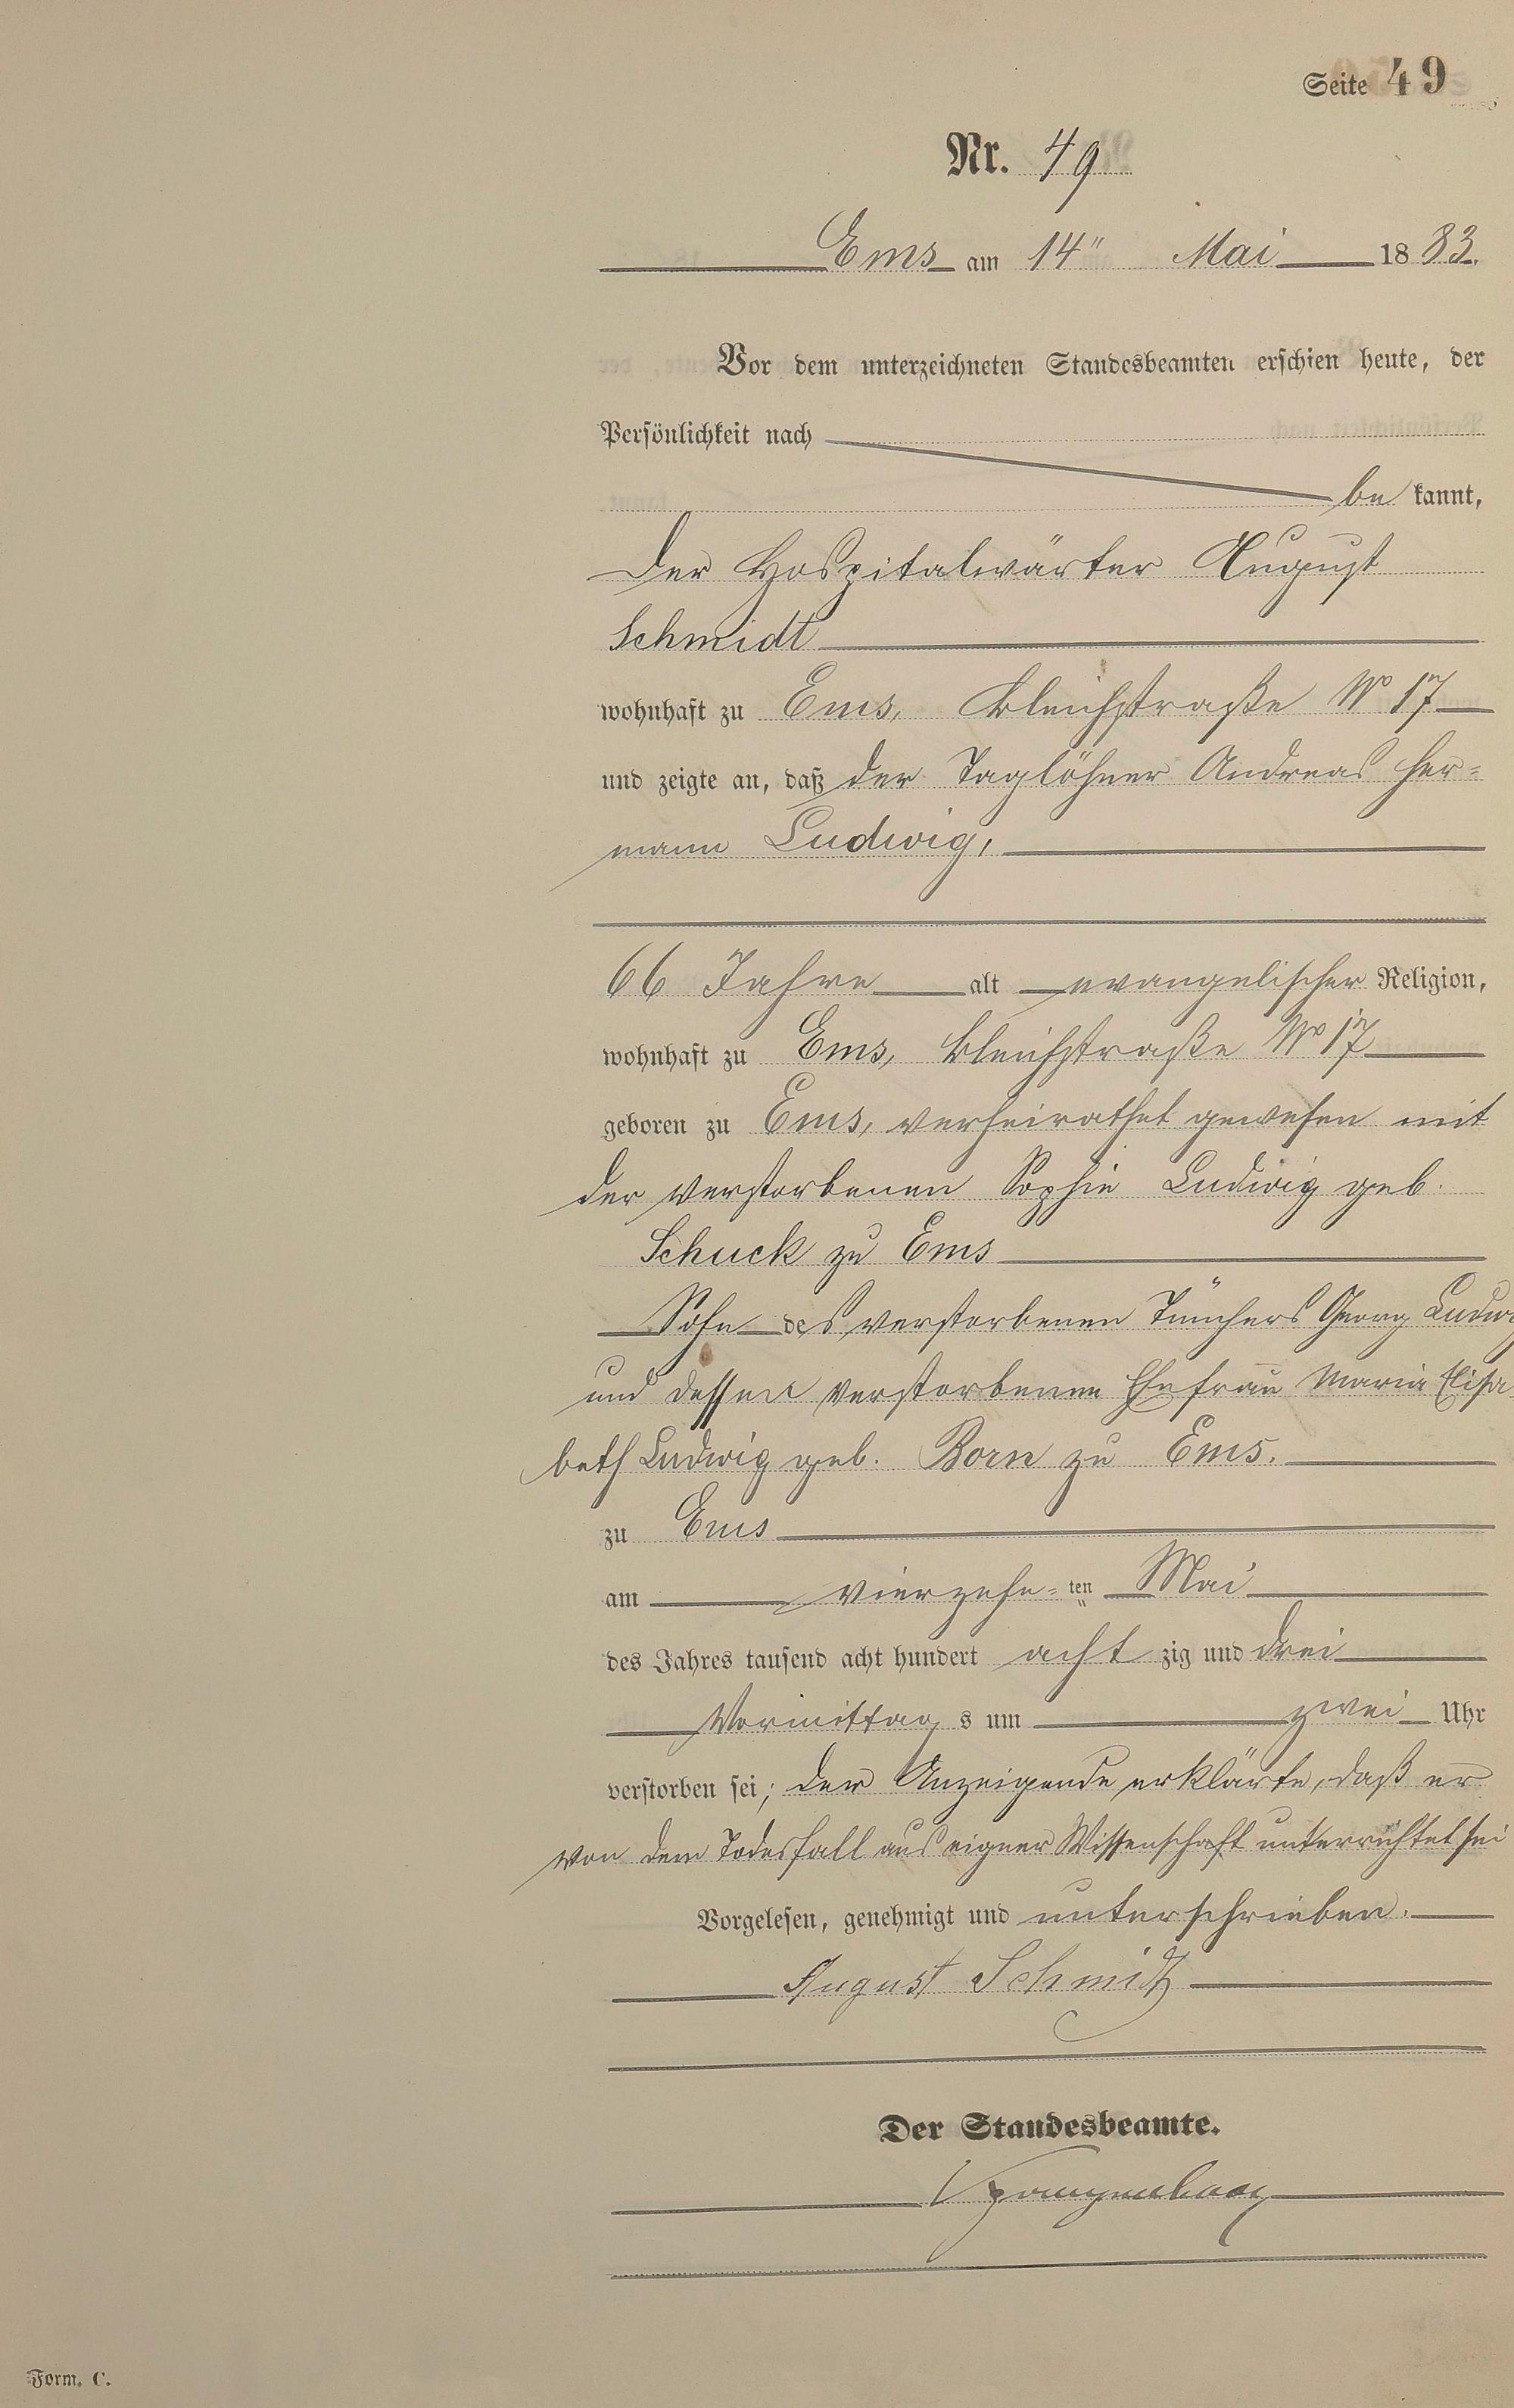 Seite 49
Nr. 49
Ems am 14" Mai 1883.
Vor dem unterzeichneten Standesbeamten erschien heute, der
Persönlichkeit nach
be kannt,
der Hospitalwärter August
Schmidt
wohnhaft zu Ems, Bleichstraße No 17
und zeigte an, daß der Taglöhner Andreas Her=
mann Ludwig,
66 Jahre alt evangelischer Religion,
wohnhaft zu Ems, Bleichstraße No 17
geboren zu Ems, verheirathet gewesen mit
der verstorbenen Sophie Ludwig geb.
Schuck zu Ems
Sohn des verstorbenen Tünchers Georg Ludwig
und dessen verstorbenen Ehefrau Maria Elisa
beth Ludwig geb. Born zu Ems.
zu Ems
am vierzehn=ten Mai
des Jahres tausend acht hundert acht zig und drei
Vormittag s um zwei Uhr
verstorben sei; der Anzeigende erklärte, daß er
von dem Todesfall aus eigner Wissenschaft unterrichtet sei
Vorgelesen, genehmigt und unterschrieben.
August Schmitz
Der Standesbeamte.
Form. C.